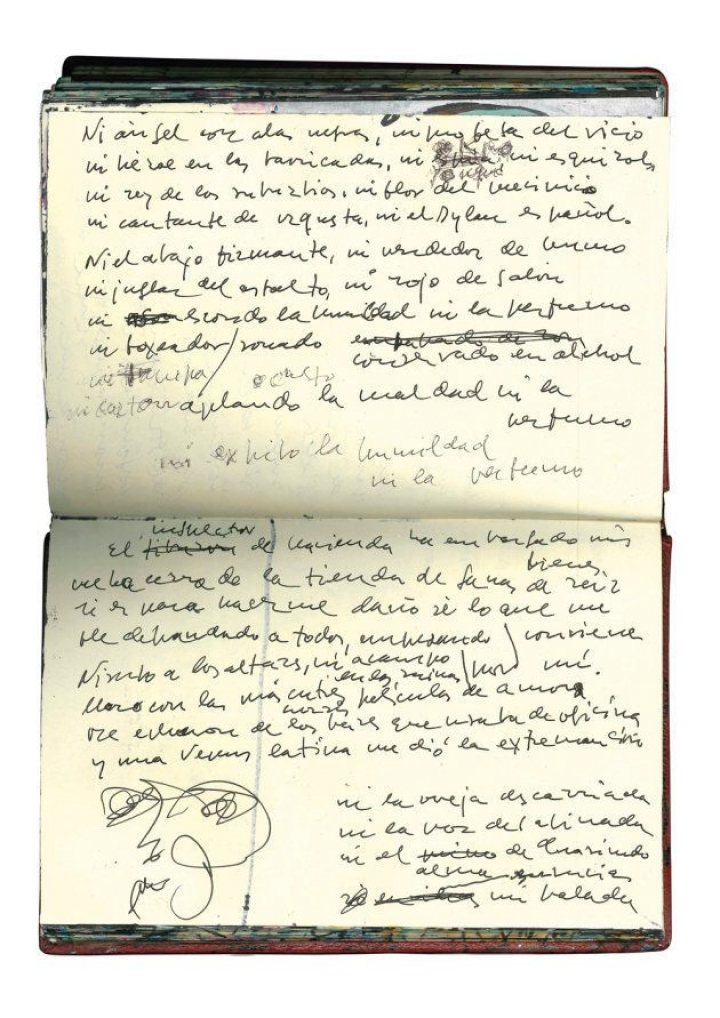 Ni ángel con alas negras, ni profeta del vicio
ni héroe en las barricadas, ni ni esquirol
ni rey de los suburbios, ni flor del precipicio
ni cantante de orquesta, ni el Dylan español.
Ni el abajo firmante, ni vendedor de humo
ni juglar del asfalto, ni rojo de salón
ni escondo la humildad ni la perfumo
ni boxeador sonado
conservado en alcohol
oculto
ni aplando la maldad ni la
perfumo
ni exhibo la humildad
ni la perfumo
inspector
El de hacienda ha embargado mis
bienes
me ha cerrado la tienda de ganas de reír
si es para hacerme daño sé lo que me
conviene
he defraudado a todos, empezando por mí.
Ni subo a los altares, ni acampo
en las ruinas
lloro con las más cutres películas de amor
me echaron de los bares que usaba de oficina
y una Venus latina me dió la extremaunción
ni la oveja descarriada
ni la voz desafinada
ni el de
alma
mi balada